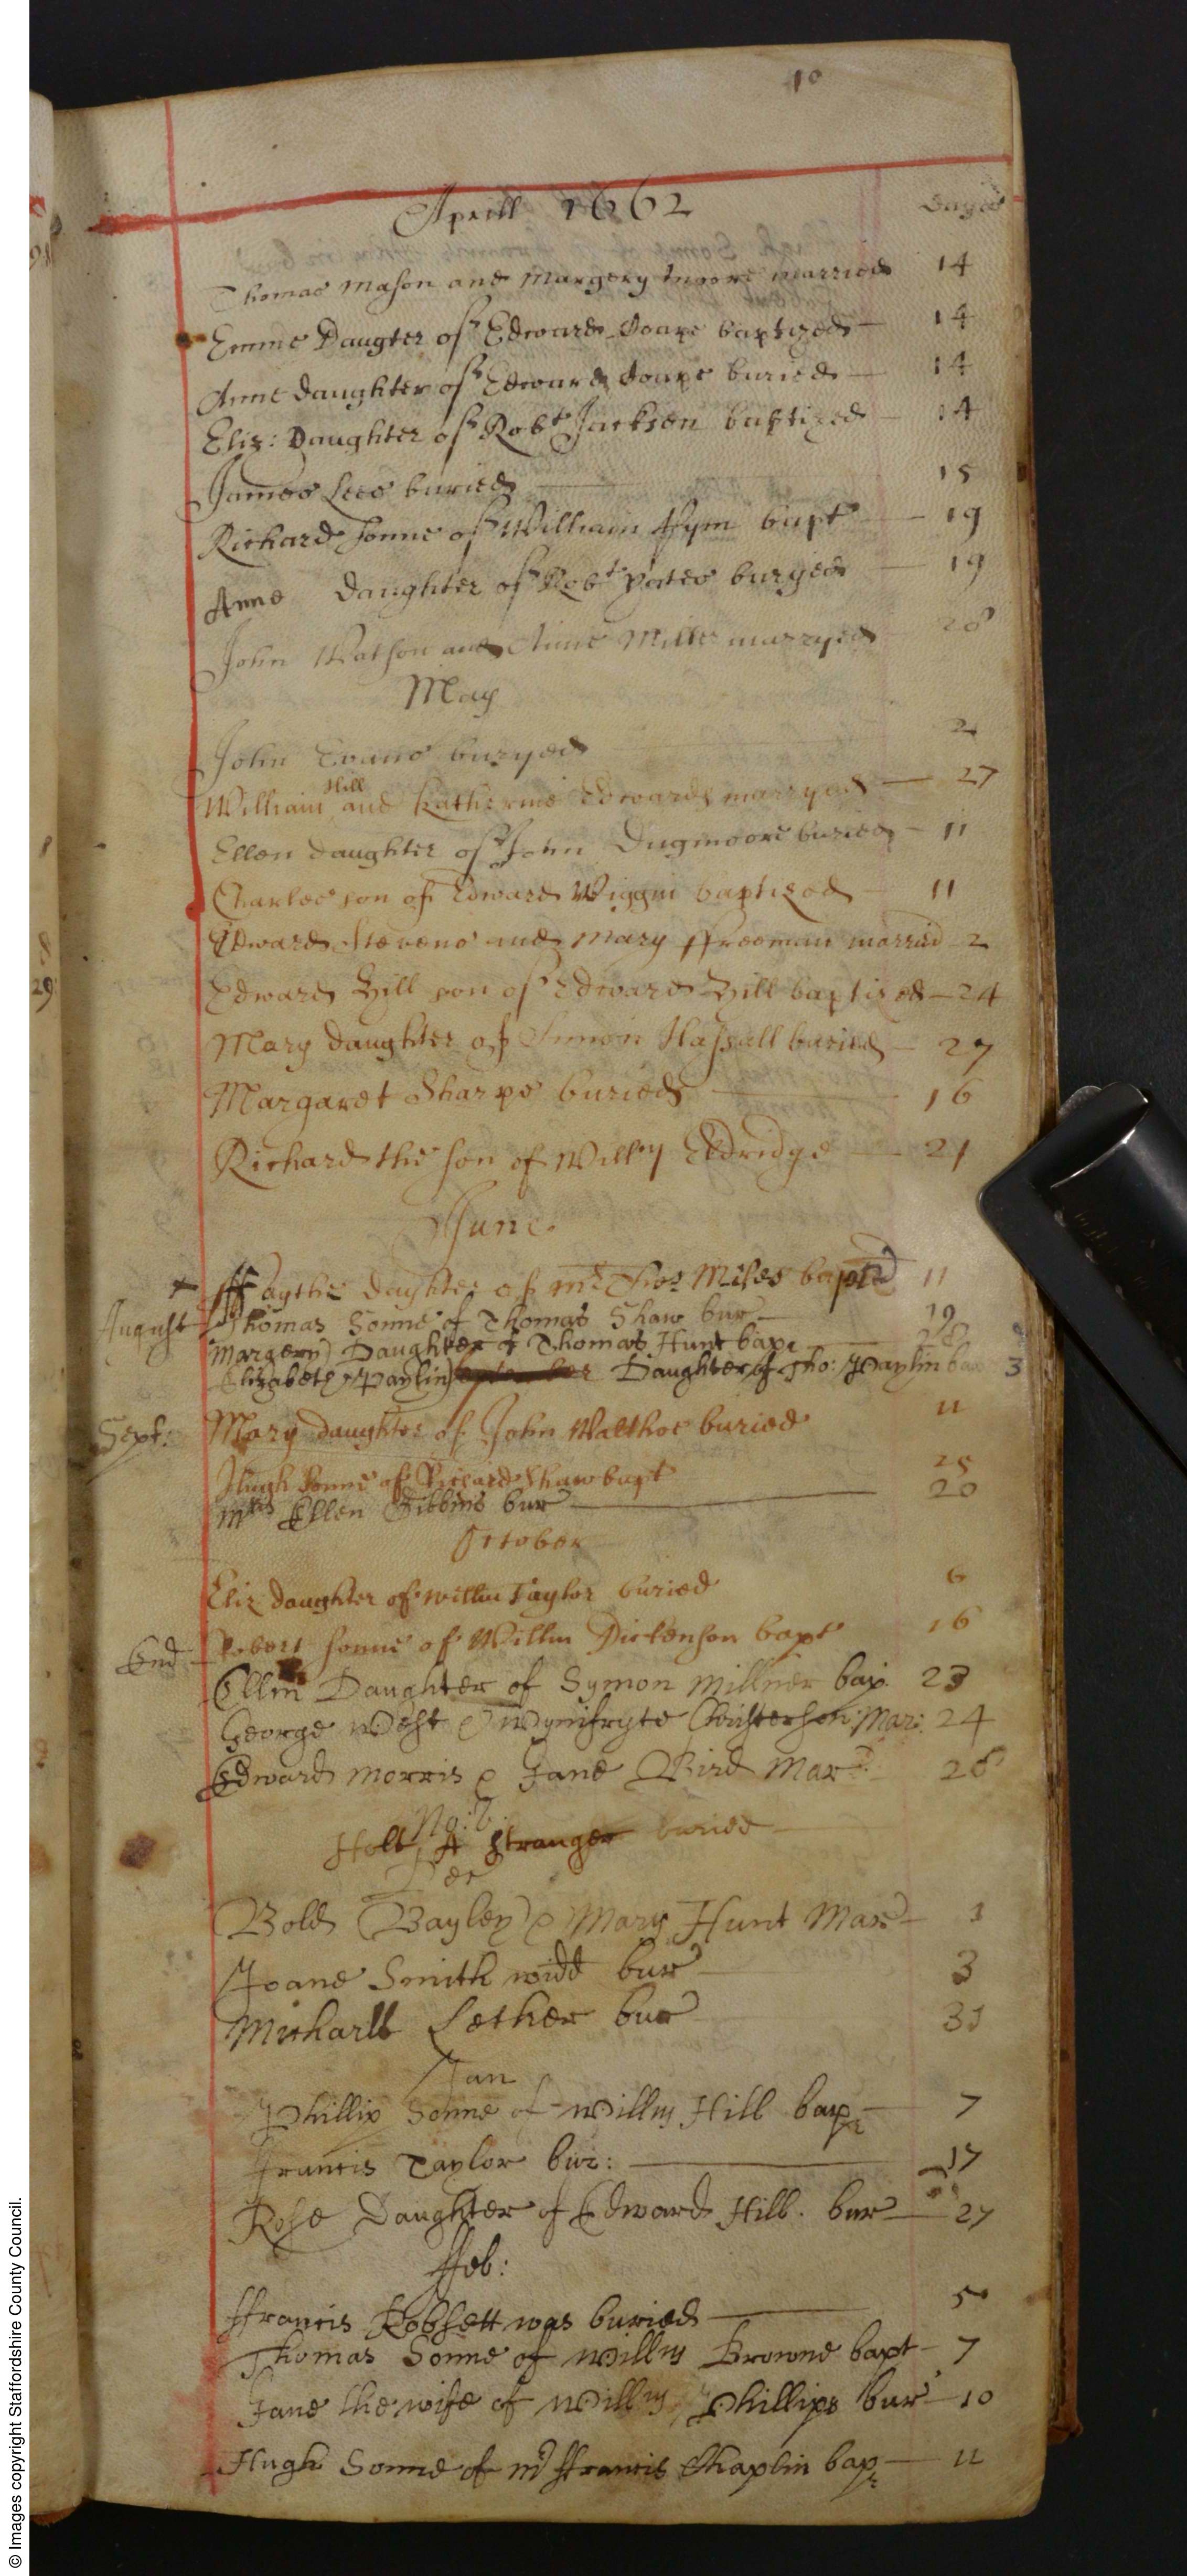 10
Aprill 1662 Dayes
Thomas Mason and Margery Moore married 14
Emme Daugter of Edward Soape baptized 14
Anne daughter of Edward Soape buried 14
Eliz: Daughter of Robt Jackson baptized 14
James Lees buried 15
Richard sonne of William Pym bapt 19
Anne Daughter of Robt Yates buryed 19
John Watson and Anne Mills marryed 28
May
John Evans buryed 2
Hill
William and Katherine Edwards marryed 27
Ellen daughter of John Dugmoore buried 11
Charles son of Edward Wiggin baptized 11
Edward Stevens and Mary ffreeman married 2
Edward Hill son of Edward Hill baptized 24
Mary daughter of Simon Hassall buried 27
Margaret Sharpe buried 16
Richard the son of Willm Eldridge 21
June
ffaythe daughter of mr Tho: Miles bapted 11
August Thomas Sonne of Thomas Shaw bur 19
Margery Daughter of Thomas Hunt bap 28
Elizabeth Paylin Daughter of Tho: Paylin 3
Sept: Mary daughter of John Walthoe buried 11
Hugh sonne of Richard Shaw bapt 25
Mris Ellen Gibbins bur 20
October
Eliz daughter of willm Taylor buried 6
Robert sonne of Willm Dickenson bapt 16
End
Ellin Daughter of Symon Millner bap 23
George West & Wynifryte Christerson Mar: 24
Edward Morris & Jane Bird Mard 28
No: b:
Holt, A stranger buried
Dec
Bold Bayley & Mary Hunt Mard 1
Joane Smith widd bur 3
Michaell Lether bur 31
Jan
Phillip Sonne of Willm Hill bap 7
Francis Taylor bur: 17
Rose Daughter of Edward Hill. bur 27
ffeb:
ffrancis Robsett was buried 5
Thomas Sonne of Willm Browne bapt 7
Jane the wife of Willm Phillips bur 10
Hugh Sonne of mr ffrancis Chaplin bap 11
29
© Images copyright Staffordshire County Council.